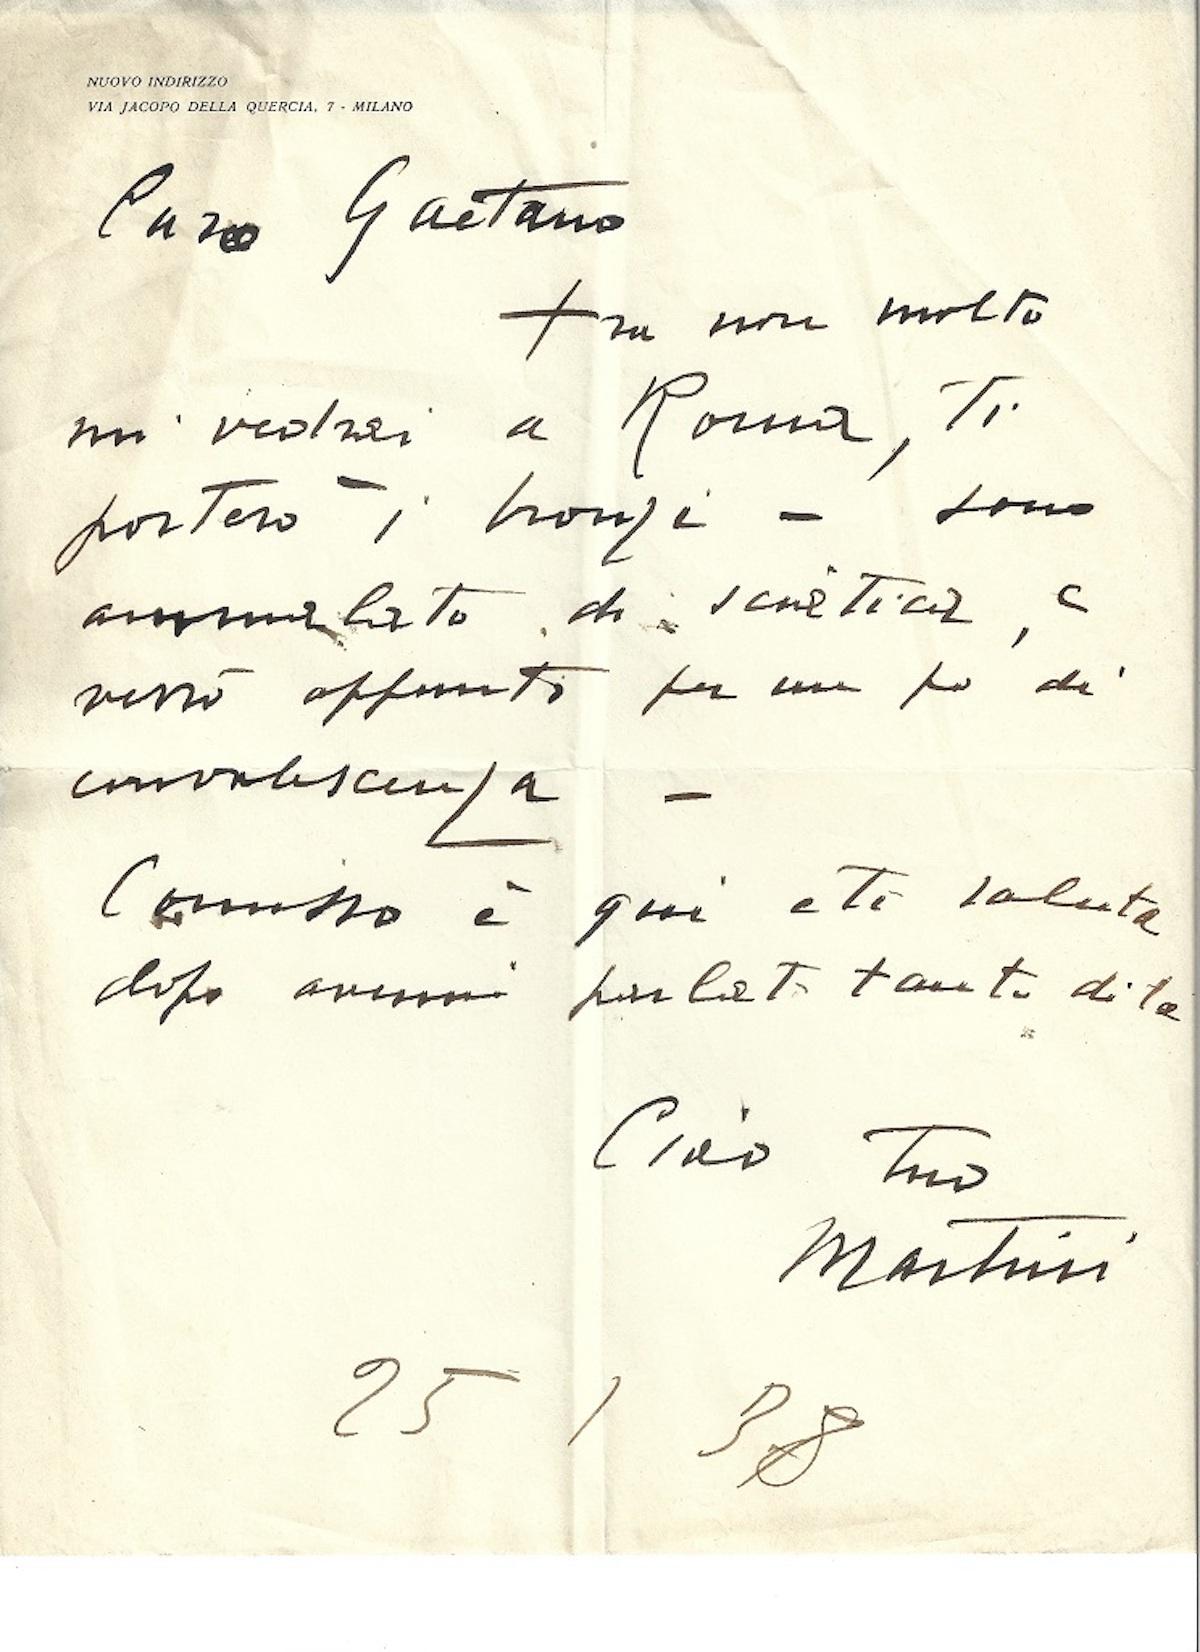 NUOVO INDIRIZZO
VIA JACOPO DELLA QUERCIA, 7 - MILANO
Caro Gaetano
tra non molto
mi vedrai a Roma, ti
porterò i bronzi - sono
ammalato di sciatica, e
verrò appunto per un po di
convalescenza -
Comisso è qui e ti saluta
dopo avermi parlato tanto di te
Ciao tuo
Martini
25 1 38